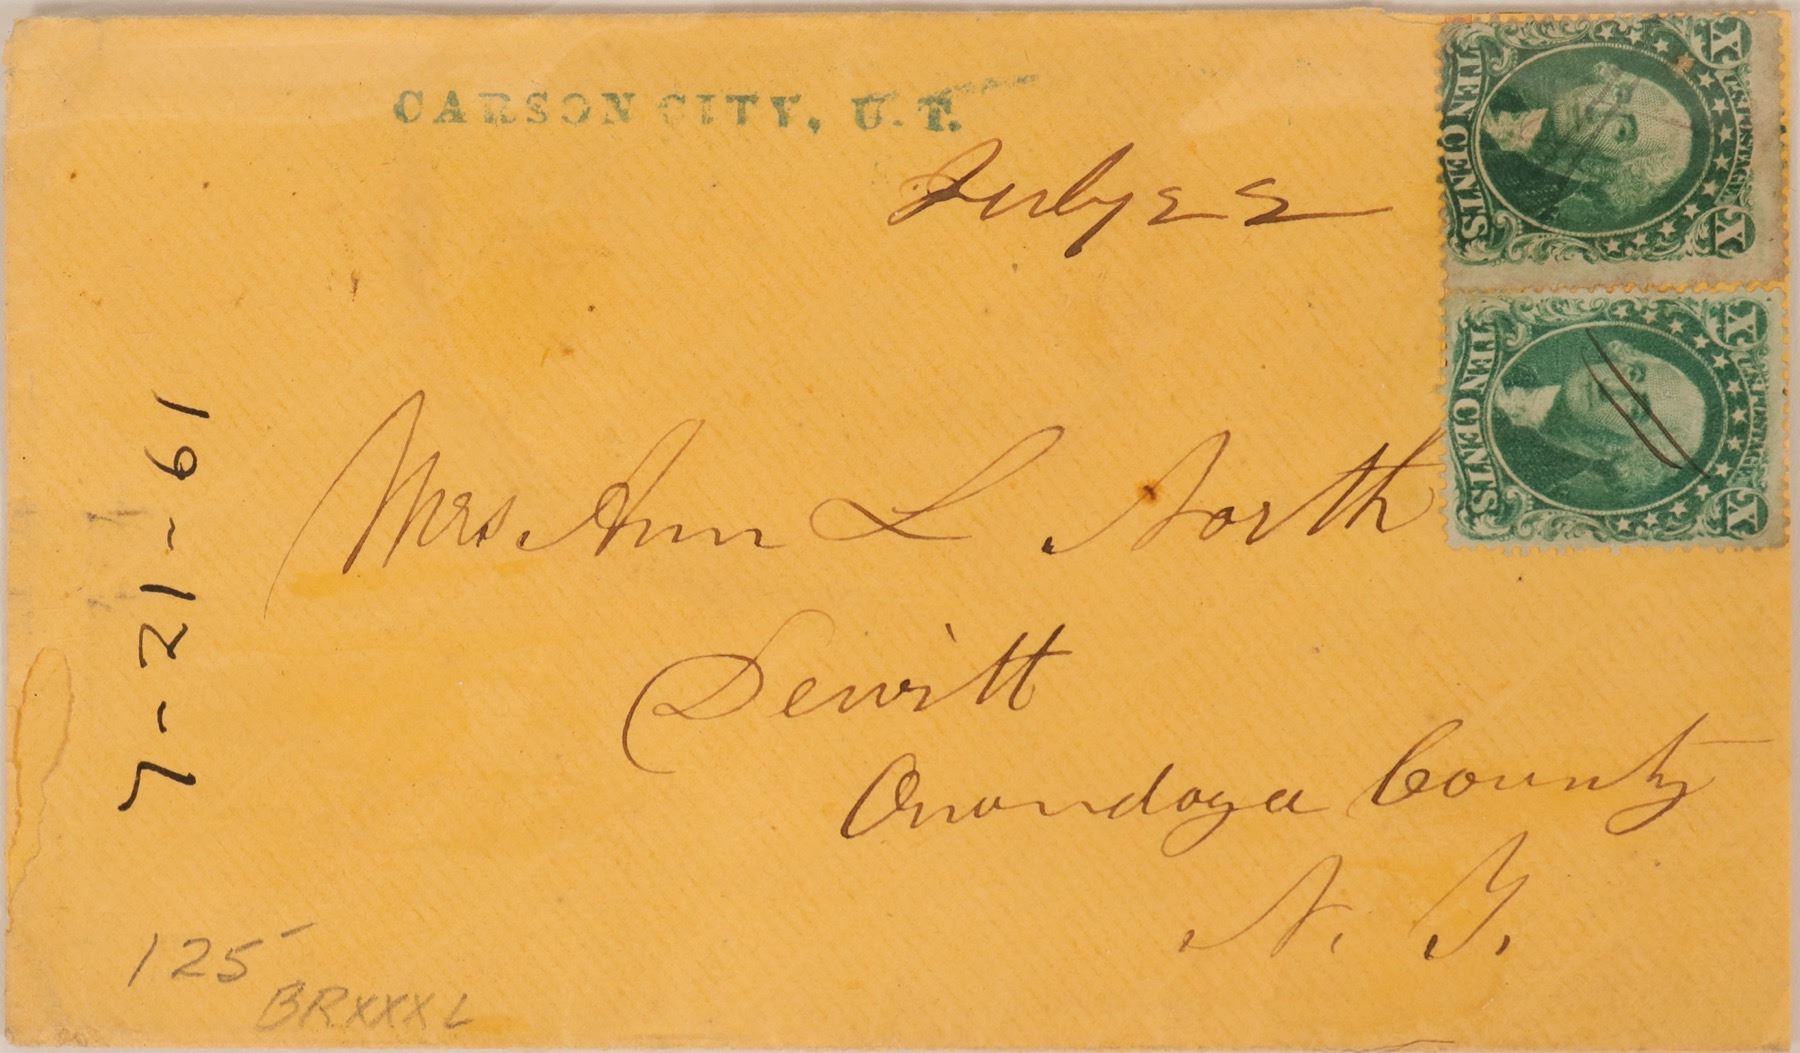 CARSON CITY, U.T.
July 22
Mrs Ann L North
Dewitt
Onondaga County
N. Y.
7-21-61
125-
BRXXXL
U.S. POSTAGE
X X
TEN CENTS
U.S. POSTAGE
X X
TEN CENTS